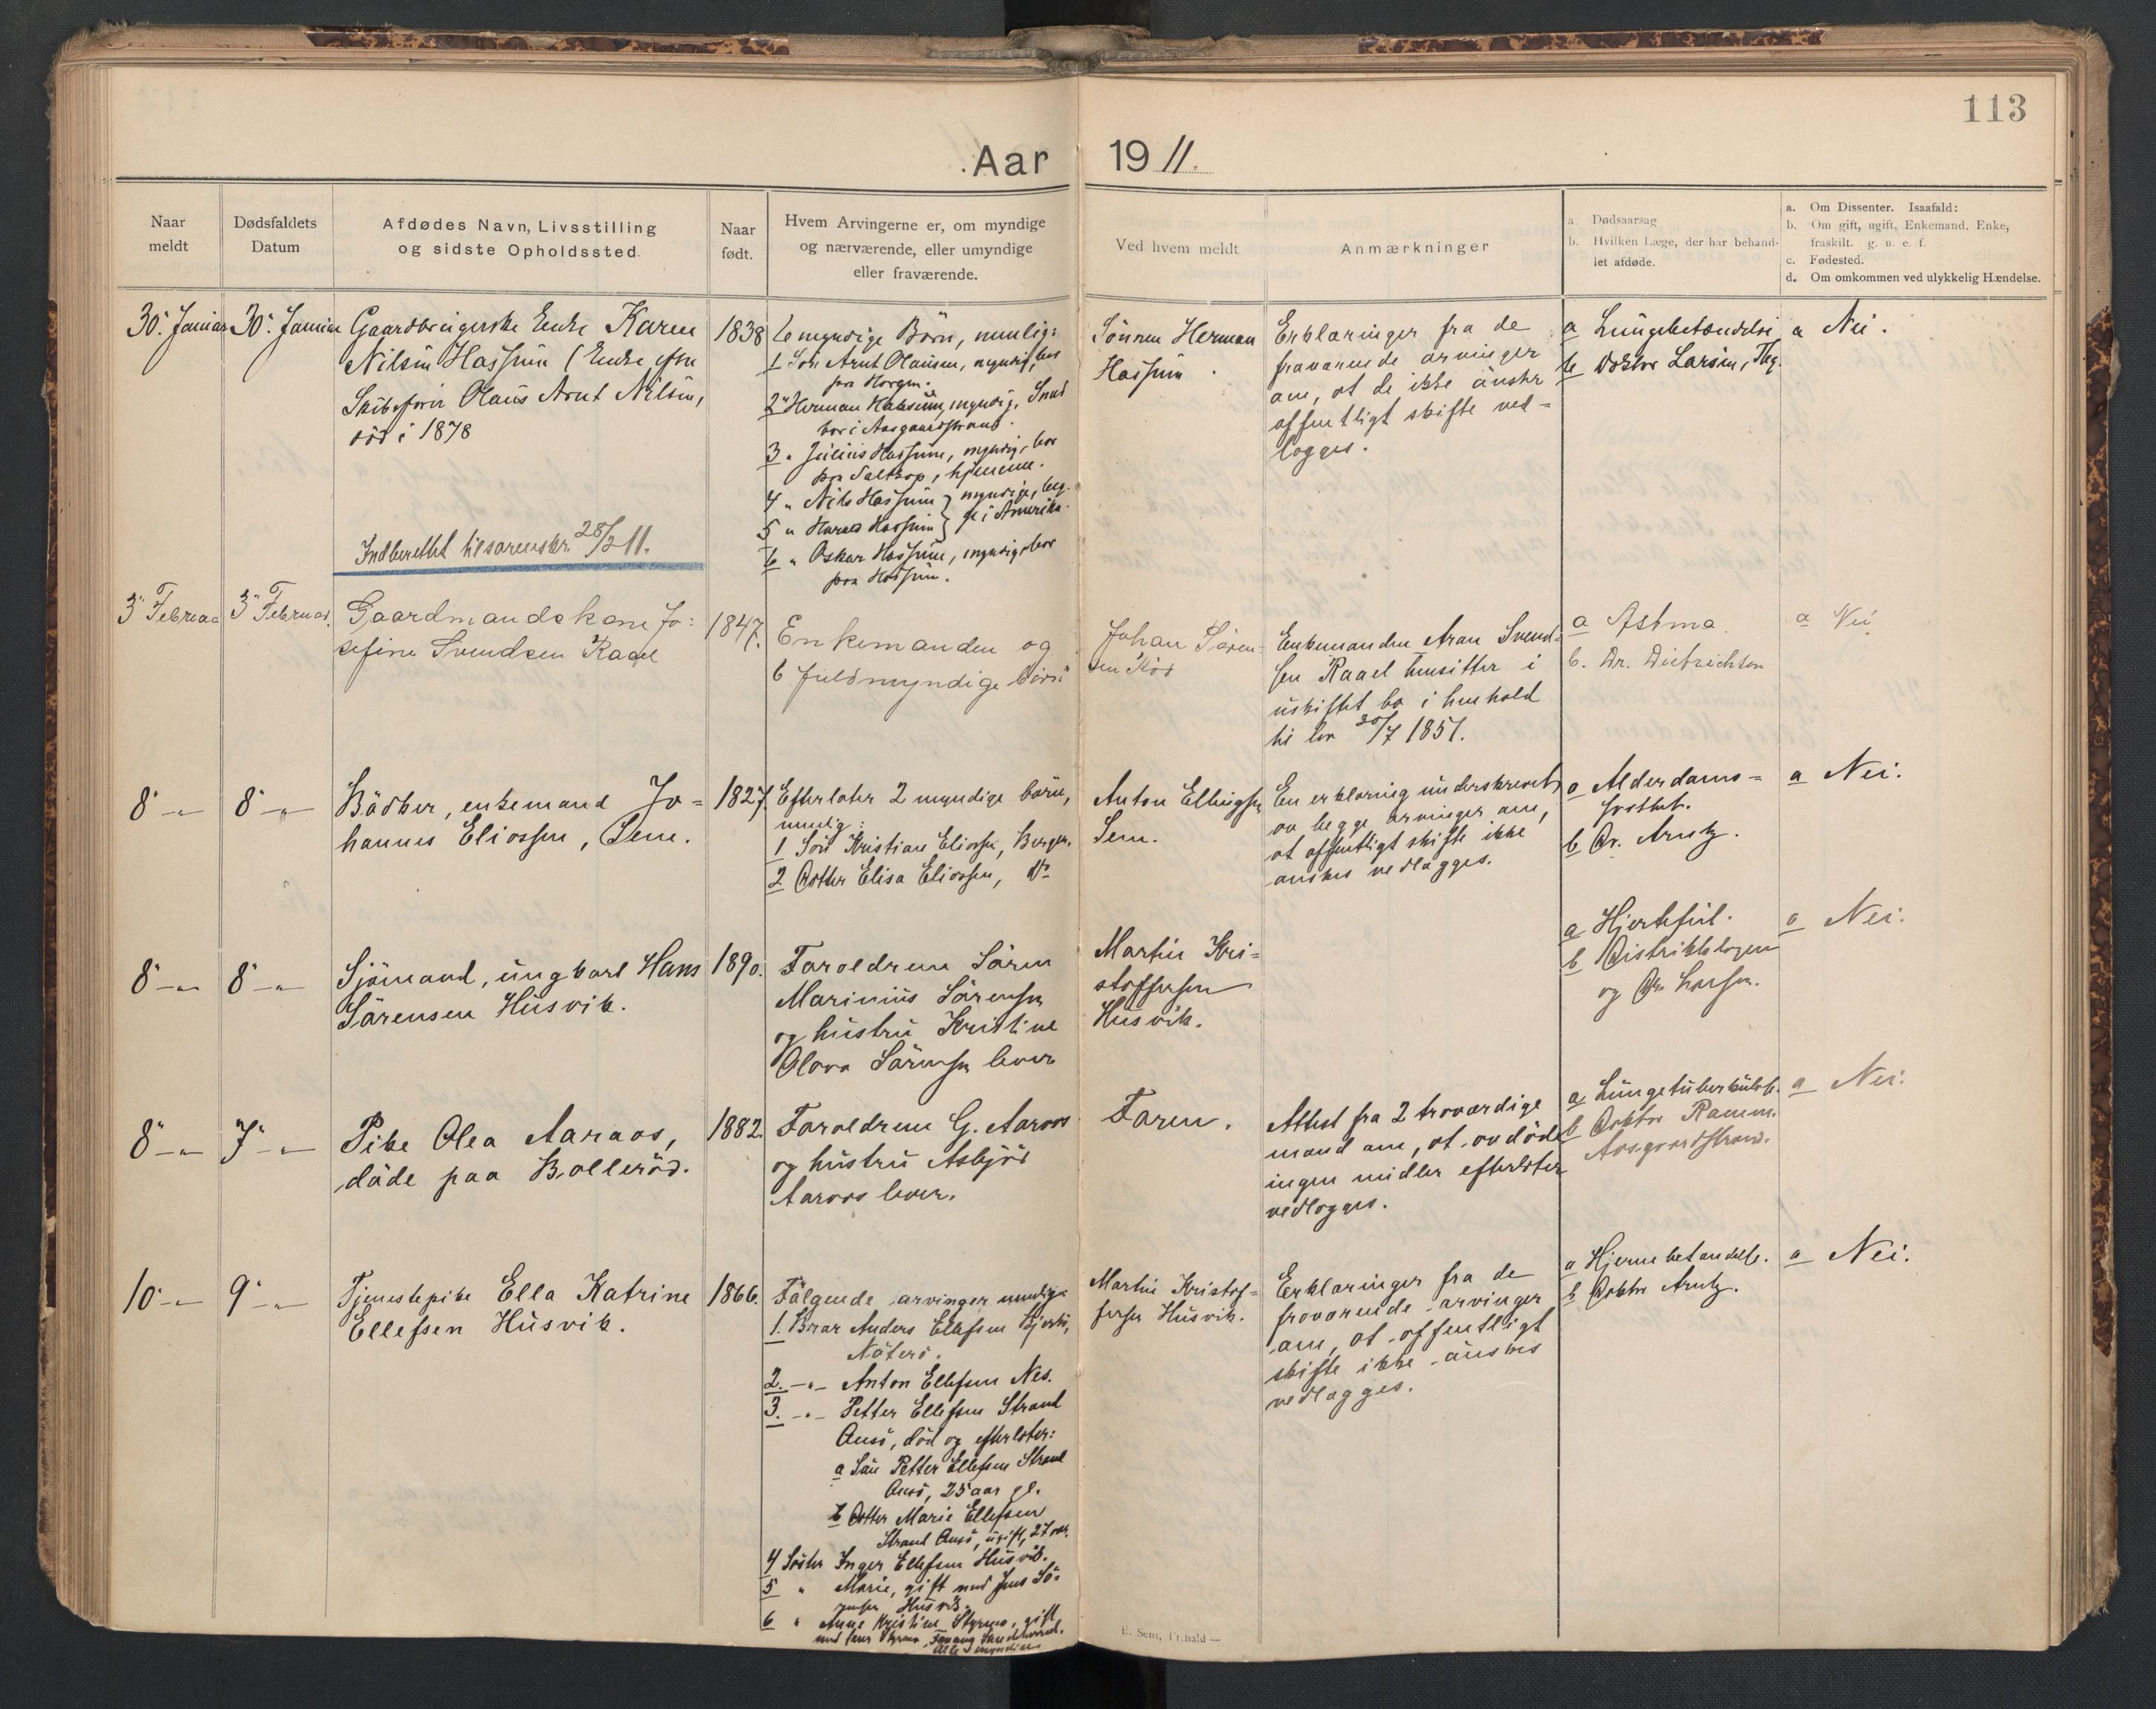 113
Aar 1911.
Naar meldt
Dødsfaldets Datum
Afdødes Navn, Livsstilling
og sidste Opholdssted.
Naar født.
Hvem Arvingerne er, om myndige
og nærværende, eller umyndige
eller fraværende.
Ved hvem meldt
Anmærkninger
a. Dødsaarsag
b. Hvilken Læge, der har behand-
let afdøde.
a. Om Dissenter. Isaafald:
b. Om gift, ugift, Enkemand, Enke,
fraskilt. g. u. e. f.
c. Fødested.
d. Om omkommen ved ulykkelig Hændelse.
30. Januar
30. Januar
Gaardbrugerske Enke Karen
Nilsen Hassum (Enke efter
Skibsfører Olaus Arnt Nilsen,
död i 1878
Indberettet til sorenskr. 28/2 11.
1838
6 myndige Börn, nemlig:
1 Sön Arnt Olausen, myndig, bor
paa Horgen.
2 " Herman Hassum, myndig, Smed
bor i Aasgaardstrand.
3 " Julius Hassum, myndig, bor
paa Saltkop, hjemme.
4 " Nils Hassum } myndige, beg-
5 " Harald Hassum } ge i Amerika.
6 " Oskar Hassum, myndig, bor
paa Hassum.
Sönnen Herman
Hassum.
Erklæringer fra de
fraværende arvinger
om, at de ikke önsker
offentligt skifte ved-
lægges.
a Lungebetændelse
b Doktor Larsen, Tbg.
a Nei.
3 Februar
3 Februar.
Gaardmandskone Jo-
sefine Svendsen Raael
1847.
Enkemanden og
6 fuldmyndige börn
Johan Sören-
sen Röd
Enkemanden Aran Svend-
sen Raael hensitter i
uskiftet bo i henhold
til lov 30/7 1851.
a Astma
b. Dr. Dietrichson
a Nei
8 -"-
8 -"-
Bödker, enkemand Jo-
hannes Eliassen, Sem.
1827.
Efterlater 2 myndige börn,
nemlig:
1 Sön Kristian Eliassen, Bergen.
2 Datter Elisa Eliassen, do
Anton Ellingsen
Sem.
En erklæring underskrevet
av begge arvinger om,
at offentligt skifte ikke
önskes vedlægges.
a Alderdoms-
svakhet.
b Dr. Arntz.
a Nei.
8 -"-
8 -"-
Sjömand, ungkarl Hans
Sörensen Husvik.
1890.
Foreldrene Sören
Marinius Sörensen
og hustru Kristine
Olava Sörensen lever
Martin Kri-
stoffersen
Husvik.
a Hjertefeil.
b Distriktslægen
og Dr. Larsen.
a Nei.
8 -"-
7 -"-
Pike Olea Aaraas,
döde paa Bolleröd.
1882.
Foreldrene G. Aaraas
og hustru Asbjör
Aaraas lever.
Faren.
Attest fra 2 troværdige
mænd om, at avdöde
ingen midler efterlater
vedlægges.
a Lungetuberkulose.
b Doktor Ramm.
Aasgaardstrand.
a Nei.
10 -"-
9 -"-
Tjenestepike Ella Katrine
Ellefsen Husvik.
1866.
Fölgende arvinger myndige
1. Bror Anders Ellefsen
Nöterö.
2. -"- Anton Ellefsen Nes.
3. -"- Petter Ellefsen Strand
död og efterlater:
a Sön Petter Ellefsen Strand
25 aar gl.
b Datter Marie Ellefsen
Strand ugift, 27 aar.
4 Söster Inger Ellefsen Husvik.
5 " Marie, gift med Jens Sö-
rensen Husvik.
6 " Anne Kristine Styrmo, gift
med
Alle myndige
Martin Kristof-
fersen Husvik.
Erklæringer fra de
fraværende arvinger
om, at offentligt
skifte ikke önskes
vedlægges.
a Hjernebetændelse.
b Doktor Arntz.
a Nei.
E. Sem, Fr.hald —